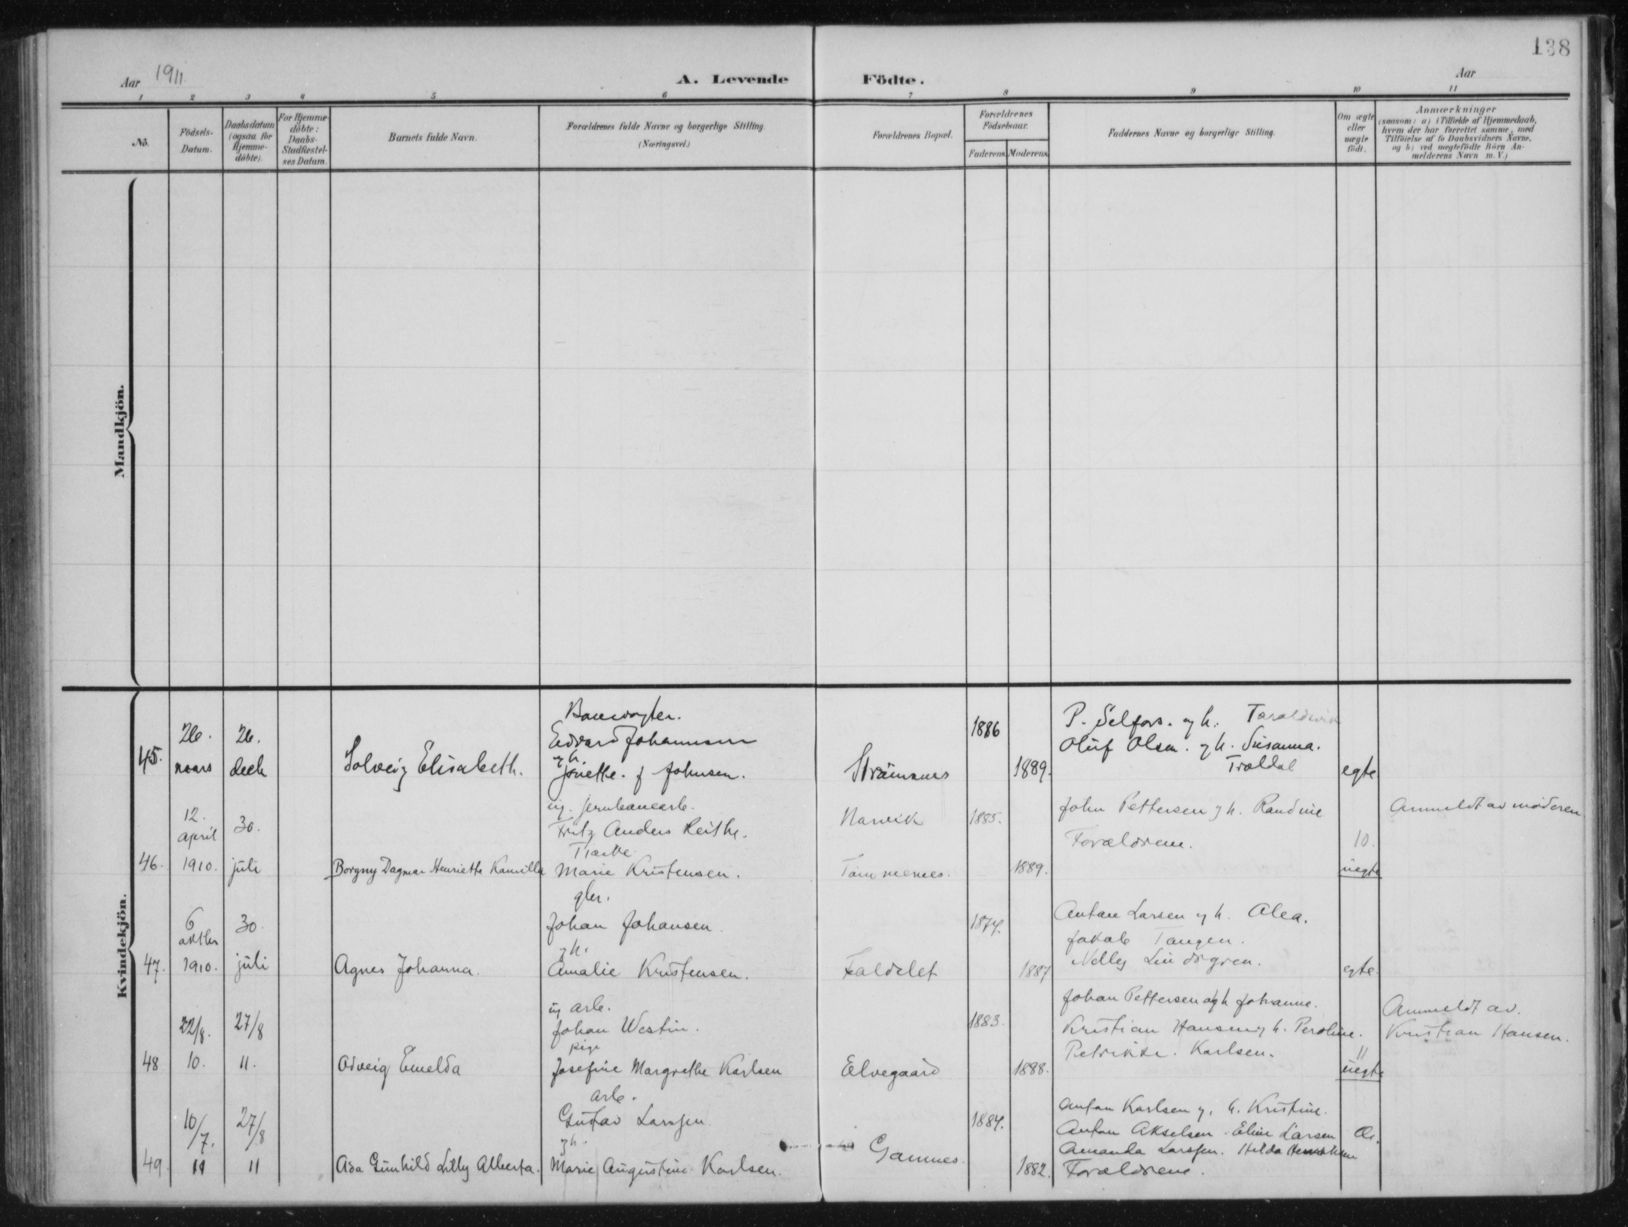 138
Aar 1911
A. Levende Födte.
Aar
1 2 3 4 5 6 7 8 9 10 11
No.
Födsels-
Datum.
Daabsdatum
(ogsaa for
Hjemme-
döbte).
For Hjemme-
döbte:
Daabs-
Stadfæstel-
ses Datum.
Barnets fulde Navn.
Forældrenes fulde Navne og borgerlige Stilling
(Næringsvei.)
Forældrenes Bopæl.
Forældrenes
Födselsaar.
Faderens. Moderens.
Faddernes Navne og borgerlige Stilling.
Om ægte
eller
uægte
födt.
Anmærkninger
(saasom: a) i Tilfælde af Hjemmedaab,
hvem der har forrettet samme, med
Tilföielse af to Daabsvidners Navne.
og b) ved uægtefödte Börn An-
melderens Navn m. V.)
Mandkjön.
Kvindekjön.
45.
26.
mars
26.
decb
Solveig Elisabeth.
Banevogter.
Edvard Johannesen
g h.
Jonette. f Johnsen.
Strömsnes
1886
1889.
P. Selfors. g h.
Oluf Olsen. g h. Susanna.
Traldal
egte
46.
12.
april
1910.
30.
juli
Borgny Dagmar Henriette Kamilla
ug. jernbanearb.
Fritz Anders Reithe.
Marie Kristensen.
Narvik
Tömmernes.
1885.
1889.
John Pettersen g h. Randine
Forældrene.
10.
uegte
Anmeldt av moderen
47.
6
oktbr
1910.
30.
juli
Agnes Johanna.
gbr.
Johan Johansen.
g h.
Amalie Kristensen.
Faldelet
1874.
1887
Anton Larsen g h. Alea.
Jakob Tangen.
Nelly Lindgren.
egte
48
22/8.
10.
27/8
11.
Odveig Emelda
ug arb.
Johan Westin.
pige
Josefine Margrethe Karlsen
Elvegaard
1883.
1888.
Johan Pettersen og h Johanne.
Kristian Hansen g h. Peroline.
Petrikke. Karlsen.
11
uegte
Anmeldt av.
Kristian Hansen.
49.
10/7.
11
27/8
11
Asa Gunhild Lilly Alberta.
arb.
Gustav Larssen.
g h.
Marie Augustine Karlsen.
Gamnes.
1884.
1882.
Anton Karlsen g. h. Kristine.
Anton Akselsen. Eline Larsen
Amanda Larssen. Hilda
Forældrene.
Æ.